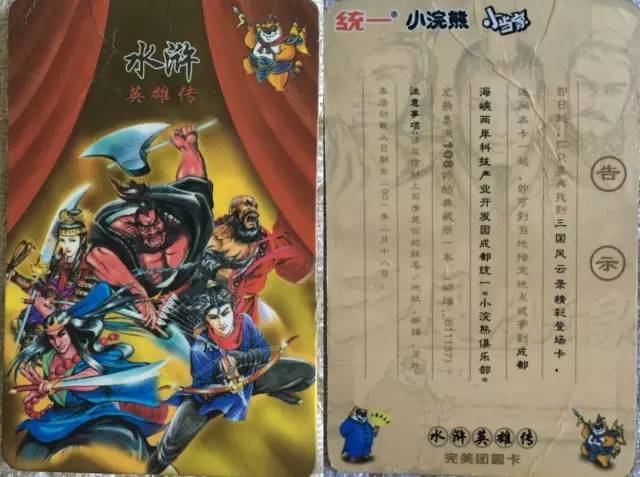 水浒
英雄传
统一®
小浣熊
小当家
告示
即日起,你只要再找到三国风云录精彩登场卡,
连同本卡一起,即可到当地指定地点或寄到成都
海峡两岸科技产业开发园成都统一“小浣熊俱乐部”
108将的典藏册一本(邮编:611137)
注意事项:请在信封上 你的姓名、地址、邮编,
本活动截止日期为二00一年 月十八日。
水浒英雄传
完美团圆卡